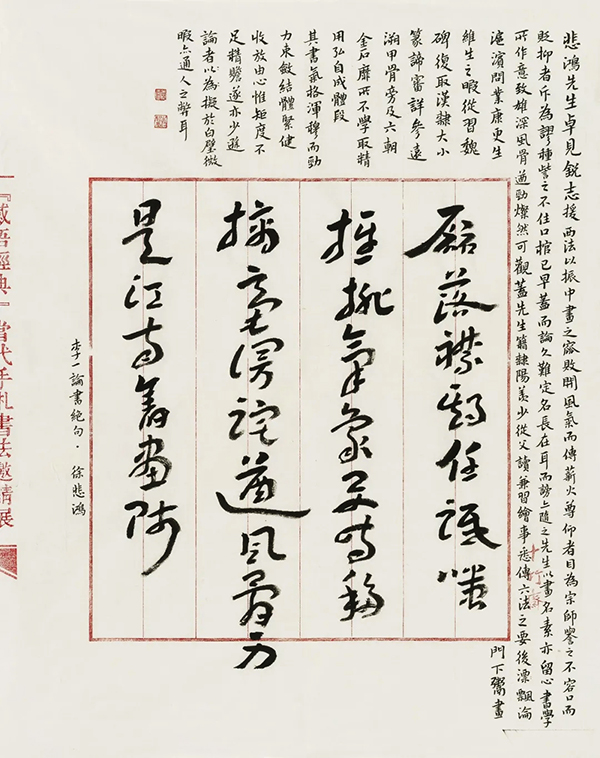 悲鴻先生卓見銳志援西法以振中畫之窳敗開風氣而傳薪火尊仰者目為宗師譽之不容口而
貶抑者斥為謬種訾之不住口棺已早蓋而論久難定名長在耳而謗亦隨之先生以畫名素亦留心書學
所作意致雄深風骨遒勁燦然可觀蓋先生籍隸陽羨少從父讀兼習繪事悉傳六法之要後漂飄淪
滬濱問業康更生門下鬻畫
維生之暇從習魏
碑復取漢隸大小
篆諦審詳參遠
溯甲骨旁及六朝
金石靡所不學取精
用弘自成體段
其書氣格渾穆而勁
力束斂結體緊健
收放由心惟矩度不
足精贍遂亦少遜
論者以為擬於白璧微
瑕亦通人之弊耳
落襟期任詆嗤
推排氣象又時移
毫遒風力
是江南舊畫師
李一論書絕句·徐悲鴻
『感悟經典』當代手札書法邀請展